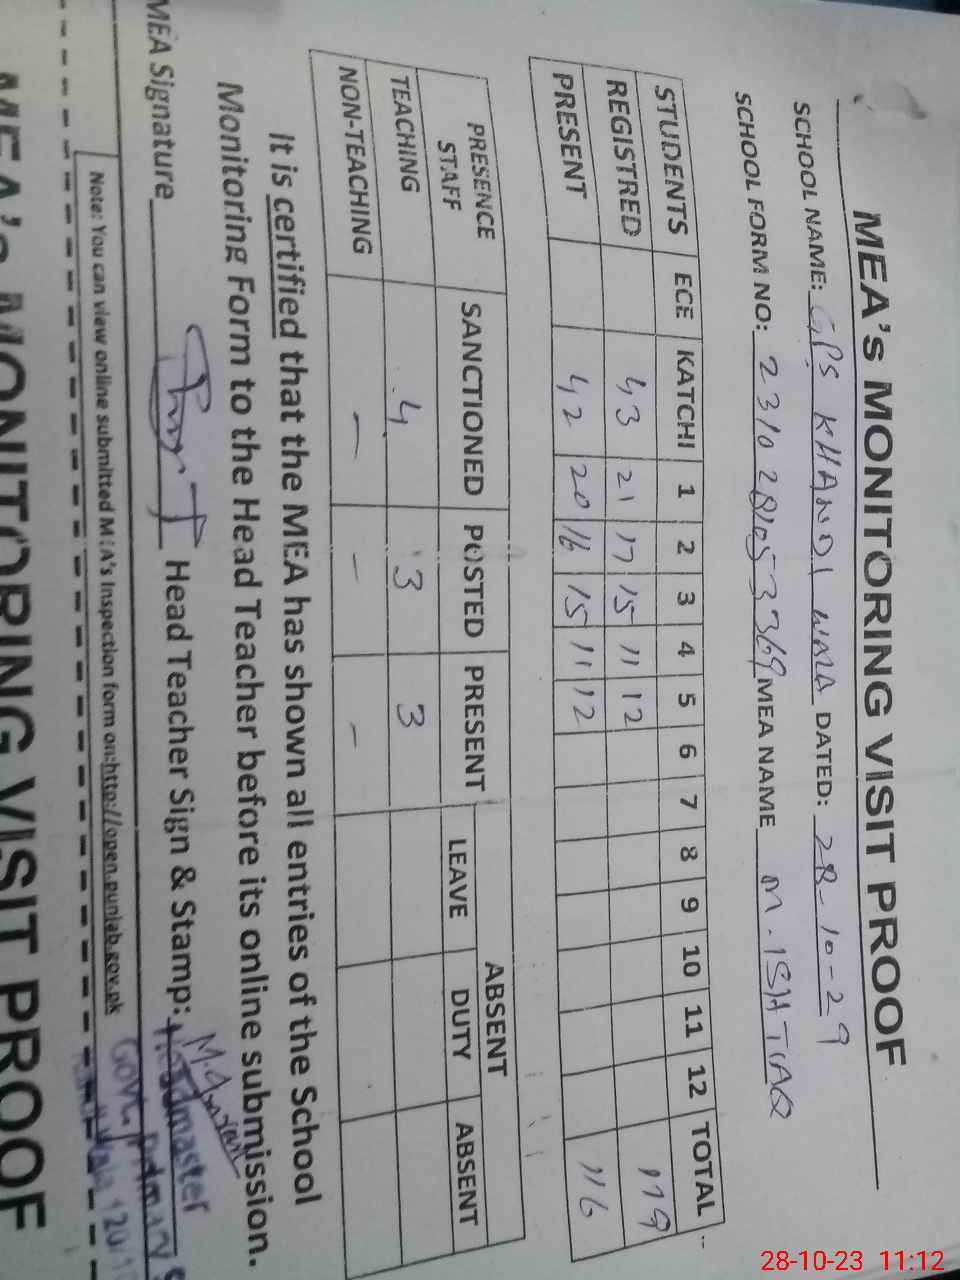 MEA's MONITORING VISIT PROOF
SCHOOL NAME: GPS KHANDI WALA DATED: 28-10-29
SCHOOL FORM NO: 23102810533369 MEA NAME M. ISHTIAQ
STUDENTS ECE KATCHI 1 2 3 4 5 6 7 8 9 10 11 12 TOTAL
REGISTRED 43 21 17 15 11 12 119
PRESENT 42 20 16 15 11 12 116
PRESENCE STAFF SANCTIONED POSTED PRESENT ABSENT
LEAVE DUTY ABSENT
TEACHING 4 3 3
NON-TEACHING - - -
It is certified that the MEA has shown all entries of the School
Monitoring Form to the Head Teacher before its online submission.
MEA Signature Head Teacher Sign & Stamp:
Headmaster
Govt. Primary
Note: You can view online submitted MEA's Inspection form on:http://open.punjab.gov.pk
MEA's MONITORING VISIT PROOF
28-10-23 11:12